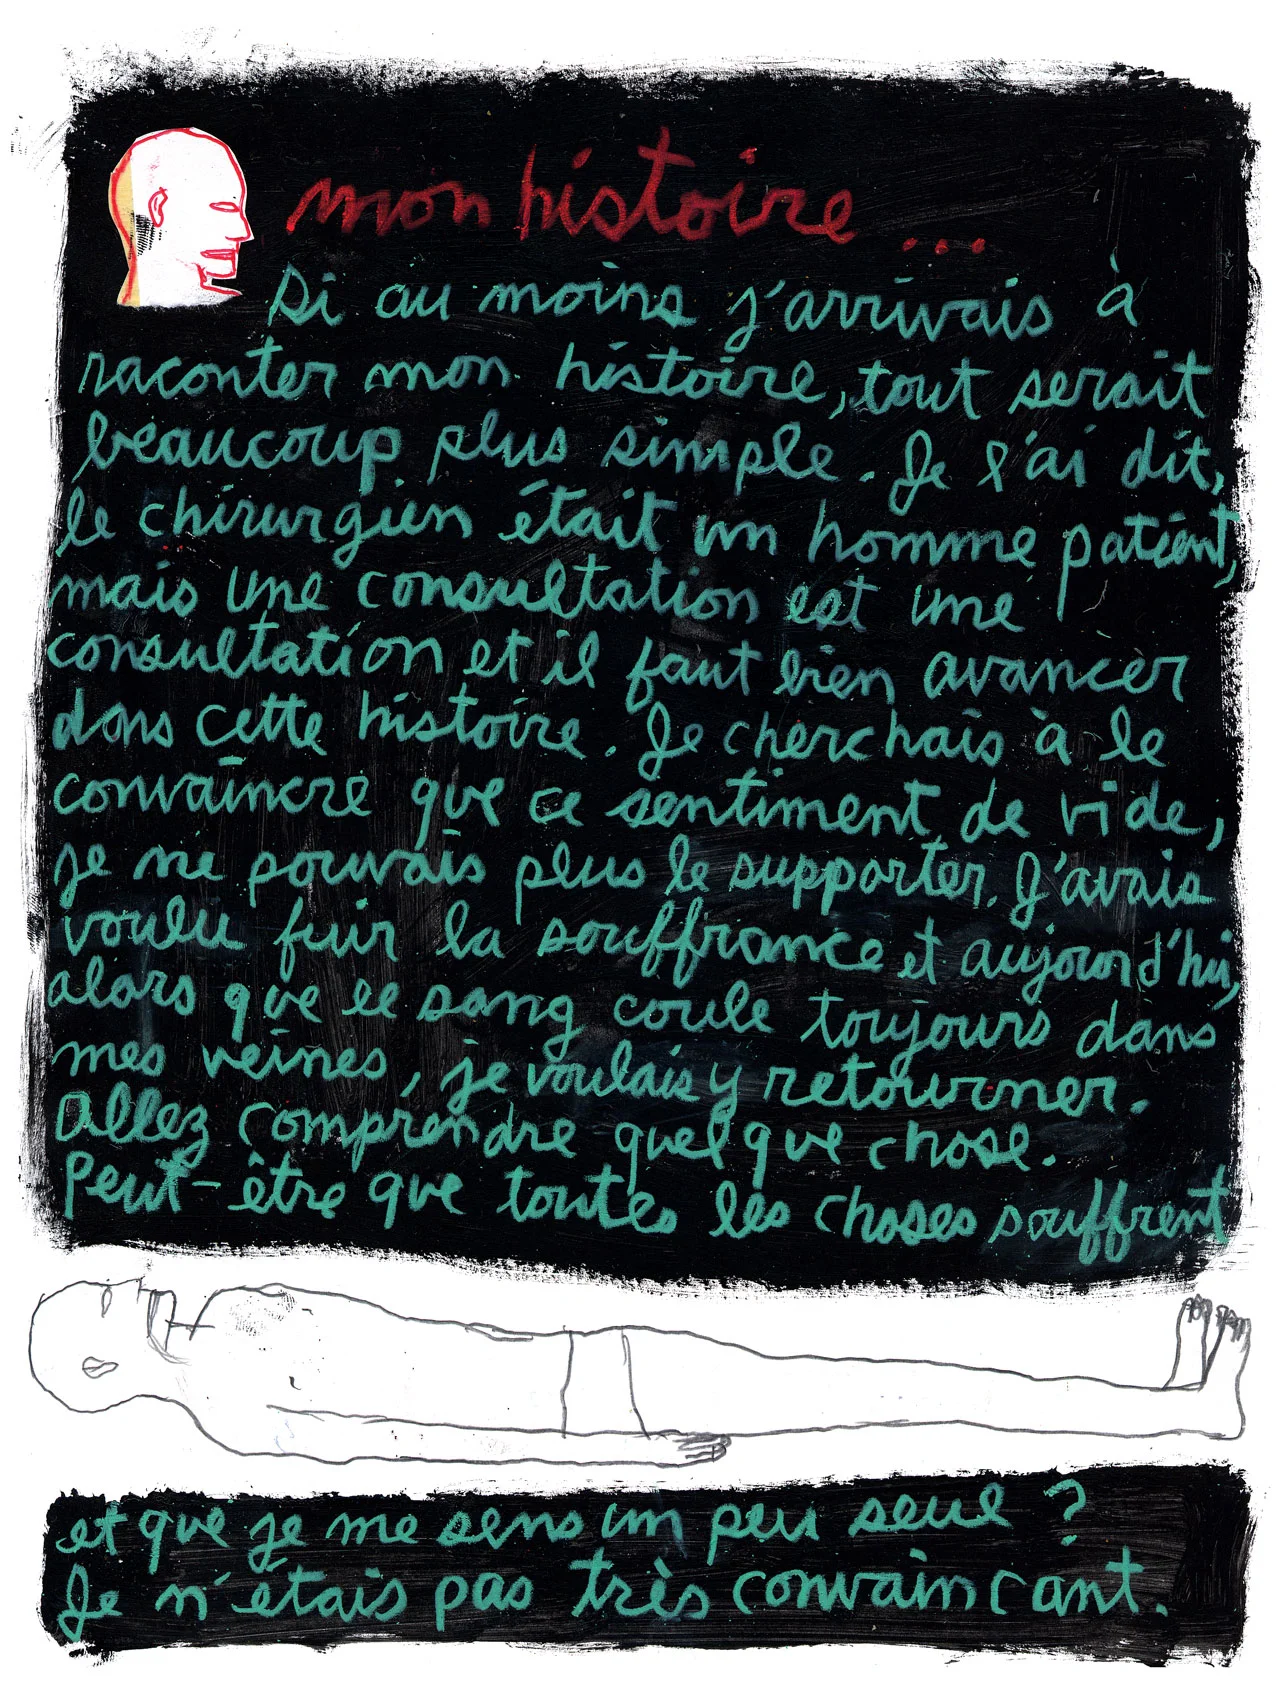 mon histoire...
Si au moins j'arrivais à
raconter mon histoire, tout serait
beaucoup plus simple. Je l'ai dit,
le chirurgien était un homme patient,
mais une consultation est une
consultation et il faut bien avancer
dans cette histoire. Je cherchais à le
convaincre que ce sentiment de vide,
je ne pouvais plus le supporter. J'avais
voulu fuir la souffrance et aujourd'hui,
alors que le sang coule toujours dans
mes veines, je voulais y retourner.
Allez comprendre quelque chose.
Peut-être que toutes les choses souffrent
et que je me sens un peu seul ?
Je n'étais pas très convaincant.